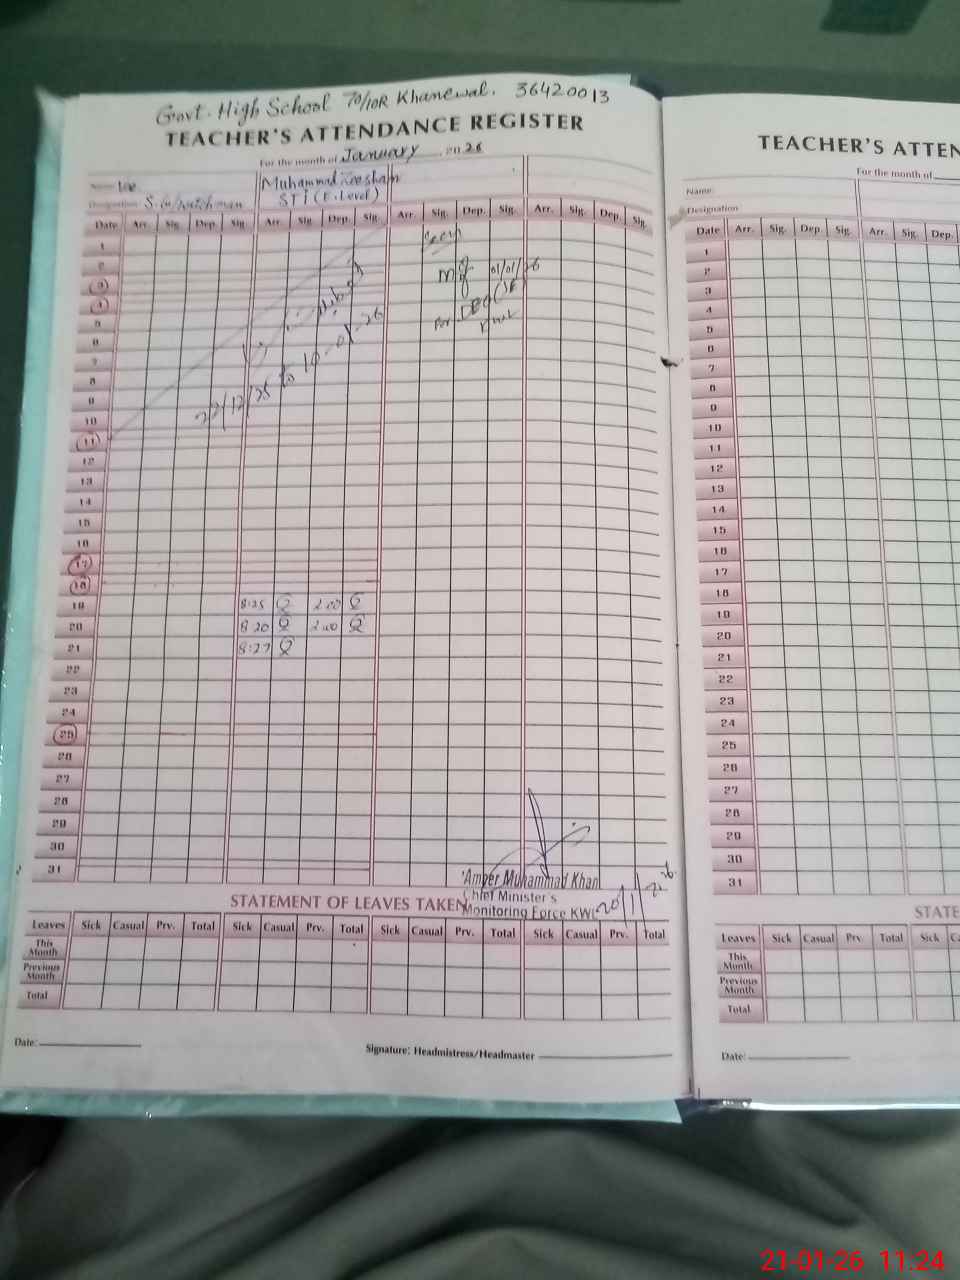 Govt. High School 70/10R Khanewal. 36420013
TEACHER'S ATTENDANCE REGISTER
For the month of January 2026
Name
Muhammad Zeeshan
Designation S.W/Watchman STI (E.Level)
Date Arr. Sig. Dep. Sig. Arr. Sig. Dep. Sig. Arr. Sig. Dep. Sig. Arr. Sig. Dep. Sig.
1
2
01/01/26
3
4
5
6
7
8
22/12/25 to 10-01-26
9
10
11
12
13
14
15
16
17
18
19 8:25 2:00
20 8:20 2:00
21 8:27
22
23
24
25
26
27
28
29
30
31
Ameer Muhammad Khan
Chief Minister's
Monitoring Force KWL
20/1/26
STATEMENT OF LEAVES TAKEN
Leaves Sick Casual Prv. Total Sick Casual Prv. Total Sick Casual Prv. Total Sick Casual Prv. Total
This Month
Previous Month
Total
Date:
Signature: Headmistress/Headmaster
TEACHER'S ATTEN
For the month of
Name:
Designation
Date Arr. Sig. Dep. Sig. Arr. Sig. Dep.
1
2
3
4
5
6
7
8
9
10
11
12
13
14
15
16
17
18
19
20
21
22
23
24
25
26
27
28
29
30
31
STATE
Leaves Sick Casual Prv. Total Sick Ca
This Month
Previous Month
Total
Date:
21-01-26 11:24